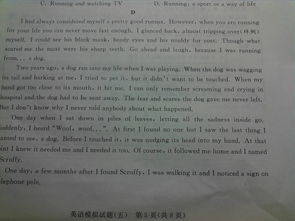 C. Running and watching TV    D. Running: a sport or a way of life
D
I had always considered myself a pretty good runner. However, when you are running
for your life you can never move fast enough. I glanced back, almost tripping over
myself. I could see his black mask, beady eyes and his muddy fur coat. Though what
scared me the most were his sharp teeth. Go ahead and laugh, because I was running
from... a dog.
Two years ago, a dog ran into my life when I was playing. When the dog was wagging
its tail and barking at me, I tried to pet it, but it didn't want to be touched. When my
hand got too close to its mouth, it bit me. I can only remember screaming and crying in
hospital and the dog had to be sent away. The fear and scares the dog gave me never left.
But I don't know why I never told anybody about what happened.
One day when I sat down in piles of leaves, letting all the sadness go inside
Suddenly, I heard "Woof, woof,...". At first I found no one but I saw the last thing I
wanted to me, a dog. Before I touched it, it was nudging its head into my hand. At that
I knew it needed me and I needed it too. Of course, it followed me home and I named
Scruffy.
One day, a few months after I found Scruffy, I was walking it and I noticed a sign on
telephone pole,
英语模拟试题(五) 第5页(共8页)